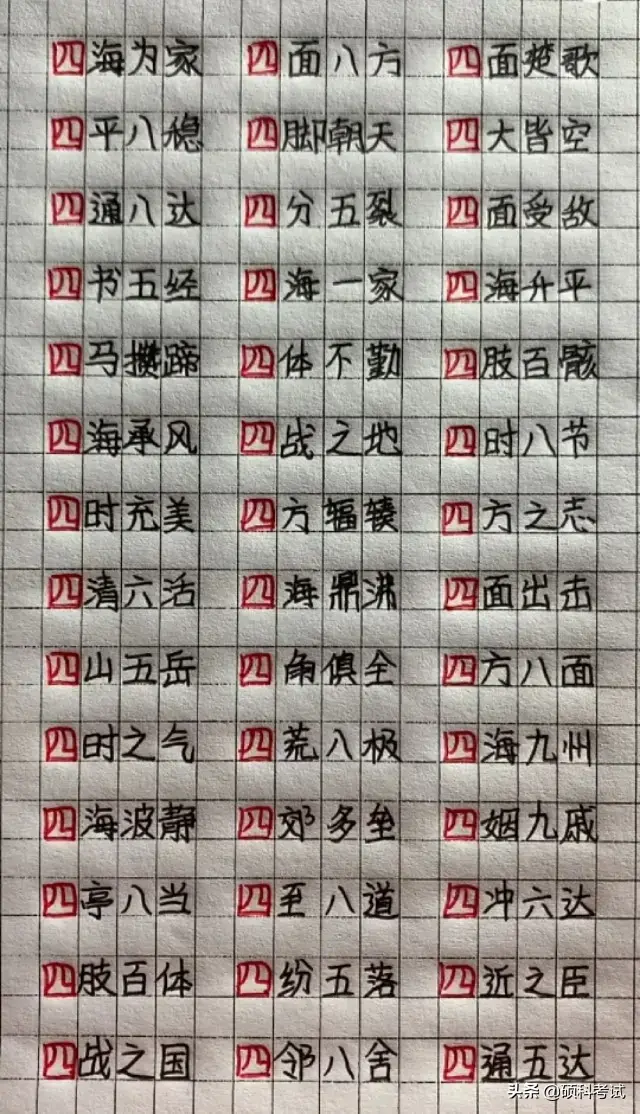 四海为家 四面八方 四面楚歌
四平八稳 四脚朝天 四大皆空
四通八达 四分五裂 四面受敌
四书五经 四海一家 四海升平
四马攒蹄 四体不勤 四肢百骸
四海承风 四战之地 四时八节
四时充美 四方辐辏 四方之志
四清六活 四海鼎沸 四面出击
四山五岳 四角俱全 四方八面
四时之气 四荒八极 四海九州
四海波静 四郊多垒 四姻九戚
四亭八当 四至八道 四冲六达
四肢百体 四纷五落 四近之臣
四战之国 四邻八舍 四通五达
头条 @硕科考试